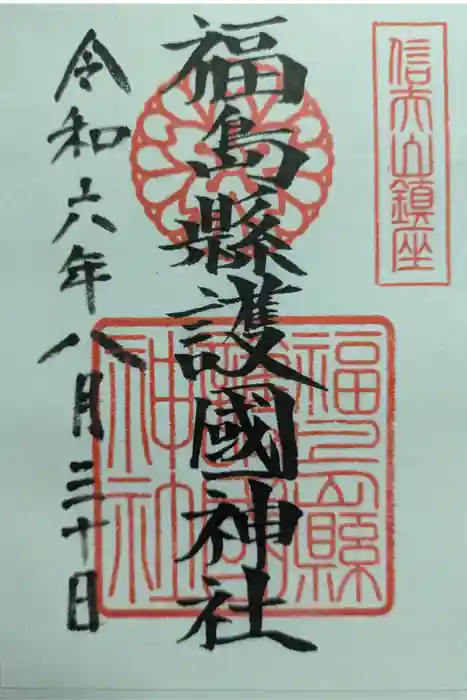 信夫山鎮座
福島縣護國神社
福島縣護國神社
令和六年八月三十日